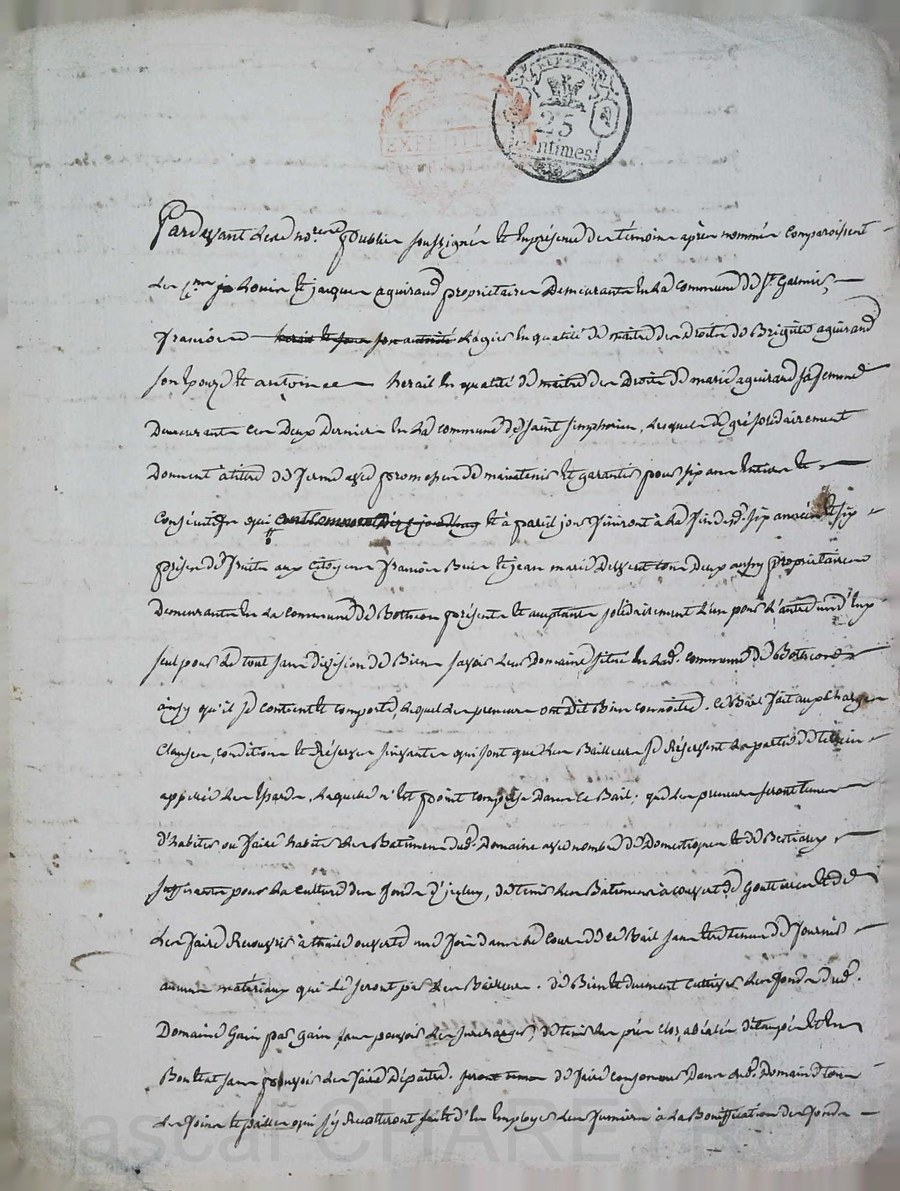 REP. FRA.
25
centimes
Pardevant le no.re public soussigné et en présence des témoins après nommés comparoissent
les c.ens Louis et jacques aguiraud propriétaires Demeurants en la commune de S.t Galmier,
françois en qualité de maitre des Droits de Brigitte aguiraud
son epouze et antoine herail en qualité de maitre des Droits de marie aguiraud sa femme
Demeurants ces Deux Derniers en la commune de Saint simphorien, lesquels de gré solidairement
Donnent à titre de ferme avec promesse de maintenir et garantir pour six ans entiers et
consécutifs qui et à pareil jour finiront à la fin de six années et six
prises de fruits aux citoyens françois et jean marie tous Deux aussy propriétaires
Demeurants en la commune de Botheon présents et acceptants solidairement l'un pour l'autre un d'eux
seul pour le tout sans division de Biens savoir leur Domaine situé en lad. commune de Botheon
ainsy qu'il se contient et comporte, lequel les preneurs ont Dit Bien connoitre. ce Bail fait aux charges
clauses, conditions et Réserves suivantes qui sont que les Bailleurs se Réservent la partie de terrein
appellée les , laquelle n'est point comprise Dans ce Bail; que les preneurs seront tenus
d'habiter ou faire habiter les Batimens dud. Domaine avec nombre de Domestiques et de Bestiaux
suffisants pour la culture des fonds d'jceluy, de tenir les Batimens à couvert de gouttieres et de
les faire Recouvrir à thuile ouverte une fois dans le cours de ce Bail sans être tenus de fournir
aucuns matériaux qui le seront par les Bailleurs. de Bien et duement cultiver les fonds dud.
Domaine Gain par gain sans pouvoir les surcharger, de tenir les prés clos, et en
Bon état sans pouvoir les faire Dépaitre. de faire consommer Dans led. Domaine tous
les foins et pailles qui s'y Recolteront et d'en employer les fumiers à la Bonification des fonds
Pascal CHAREYRON